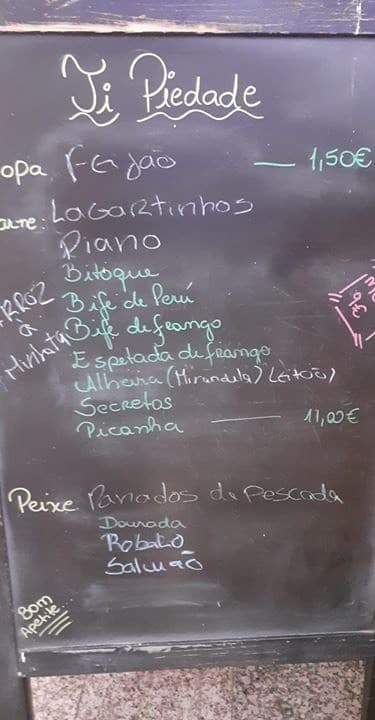 Ti Piedade
opa Feijão — 1,50€
arne: Lagartinhos
Piano
Bitoque
Bife de Perú
Bife de frango
Espetada de frango
Alheira (Mirandela) Leitão)
Secretos
Picanha — 11,00€
ARROZ
à
Minhota
Peixe Panados de Pescada
Dourada
Robalo
Salmão
Bom
Apetite